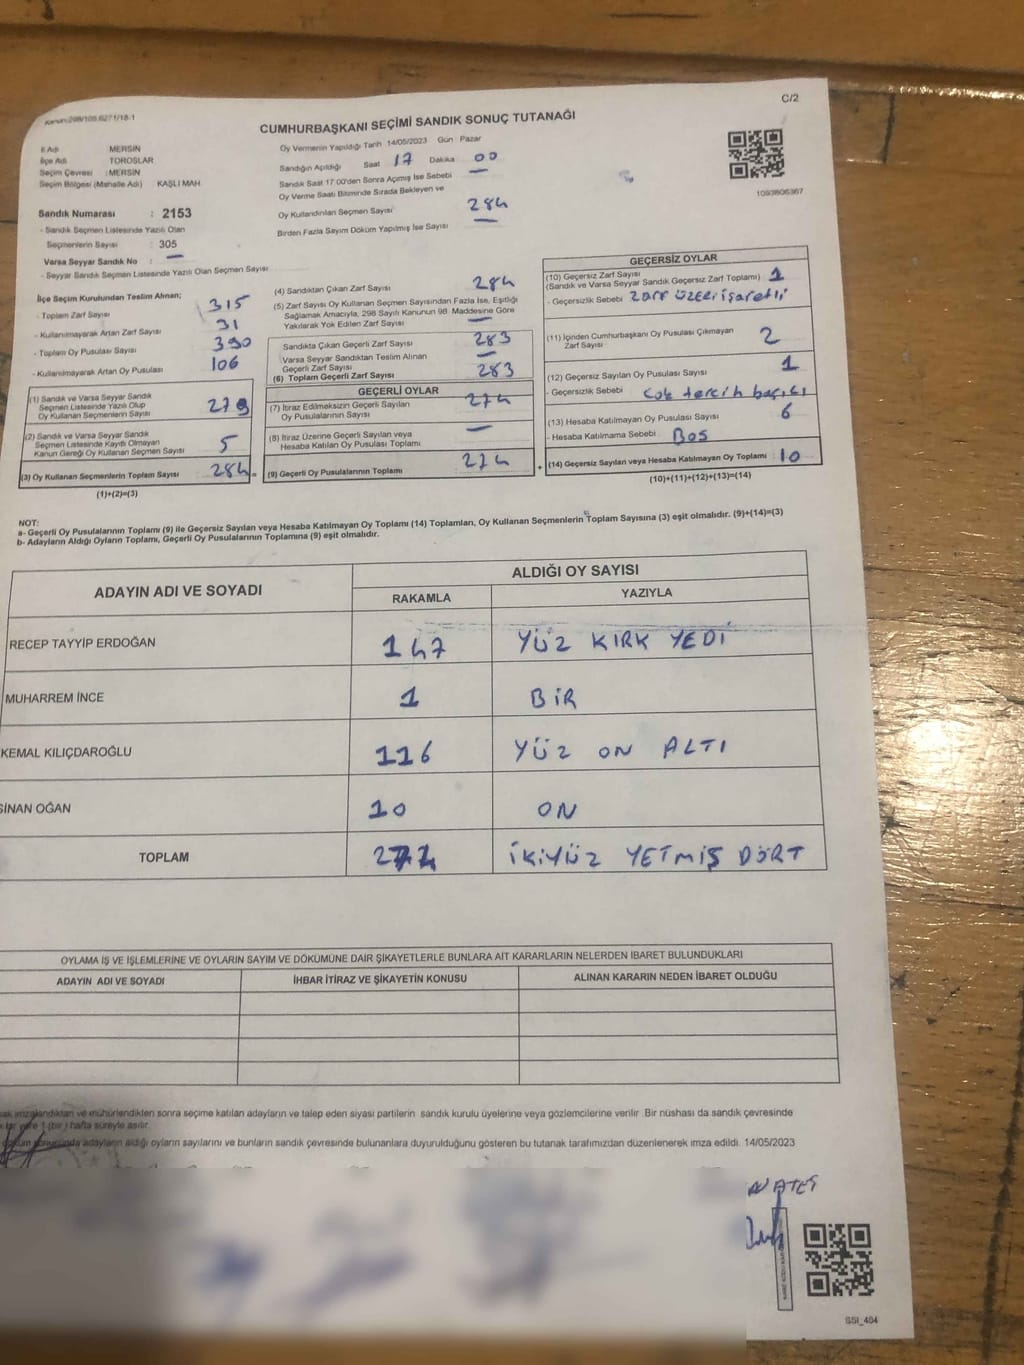 C/2
Kanun:298/105,6271/18-1
CUMHURBAŞKANI SEÇİMİ SANDIK SONUÇ TUTANAĞI
İl Adı MERSİN
İlçe Adı TOROSLAR
Seçim Çevresi : MERSİN
Seçim Bölgesi (Mahalle Adı) KAŞLI MAH.
Oy Vermenin Yapıldığı Tarih 14/05/2023 Gün Pazar
Sandığın Açıldığı Saat 17 Dakika 00
Sandık Saat 17.00'den Sonra Açılmış İse Sebebi —
Oy Verme Saati Bitiminde Sırada Bekleyen ve
Oy Kullandırılan Seçmen Sayısı 284
Birden Fazla Sayım Döküm Yapılmış İse Sayısı —
1093806367
Sandık Numarası : 2153
- Sandık Seçmen Listesinde Yazılı Olan
Seçmenlerin Sayısı : 305
Varsa Seyyar Sandık No : —
- Seyyar Sandık Seçmen Listesinde Yazılı Olan Seçmen Sayısı
İlçe Seçim Kurulundan Teslim Alınan;
- Toplam Zarf Sayısı 315
- Kullanılmayarak Artan Zarf Sayısı 31
- Toplam Oy Pusulası Sayısı 390
- Kullanılmayarak Artan Oy Pusulası 106
(1) Sandık ve Varsa Seyyar Sandık
Seçmen Listesinde Yazılı Olup
Oy Kullanan Seçmenlerin Sayısı 279
(2) Sandık ve Varsa Seyyar Sandık
Seçmen Listesinde Kayıtlı Olmayan
Kanun Gereği Oy Kullanan Seçmen Sayısı 5
(3) Oy Kullanan Seçmenlerin Toplam Sayısı 284 =
(1)+(2)=(3)
(4) Sandıktan Çıkan Zarf Sayısı 284
(5) Zarf Sayısı Oy Kullanan Seçmen Sayısından Fazla İse, Eşitliği
Sağlamak Amacıyla, 298 Sayılı Kanunun 98. Maddesine Göre
Yakılarak Yok Edilen Zarf Sayısı —
Sandıkta Çıkan Geçerli Zarf Sayısı 283
Varsa Seyyar Sandıktan Teslim Alınan
Geçerli Zarf Sayısı —
(6) Toplam Geçerli Zarf Sayısı 283
GEÇERLİ OYLAR
(7) İtiraz Edilmeksizin Geçerli Sayılan
Oy Pusulalarının Sayısı 274
(8) İtiraz Üzerine Geçerli Sayılan veya
Hesaba Katılan Oy Pusulası Toplamı —
(9) Geçerli Oy Pusulalarının Toplamı 274 +
GEÇERSİZ OYLAR
(10) Geçersiz Zarf Sayısı
(Sandık ve Varsa Seyyar Sandık Geçersiz Zarf Toplamı) 1
- Geçersizlik Sebebi zarf üzeri işaretli
(11) İçinden Cumhurbaşkanı Oy Pusulası Çıkmayan
Zarf Sayısı 2
(12) Geçersiz Sayılan Oy Pusulası Sayısı 1
- Geçersizlik Sebebi Çok tercih
(13) Hesaba Katılmayan Oy Pusulası Sayısı 6
- Hesaba Katılmama Sebebi Boş
(14) Geçersiz Sayılan veya Hesaba Katılmayan Oy Toplamı : 10
(10)+(11)+(12)+(13)=(14)
NOT:
a- Geçerli Oy Pusulalarının Toplamı (9) ile Geçersiz Sayılan veya Hesaba Katılmayan Oy Toplamı (14) Toplamları, Oy Kullanan Seçmenlerin Toplam Sayısına (3) eşit olmalıdır. (9)+(14)=(3)
b- Adayların Aldığı Oyların Toplamı, Geçerli Oy Pusulalarının Toplamına (9) eşit olmalıdır.
ADAYIN ADI VE SOYADI
ALDIĞI OY SAYISI
RAKAMLA YAZIYLA
RECEP TAYYİP ERDOĞAN 147 YÜZ KIRK YEDİ
MUHARREM İNCE 1 BİR
KEMAL KILIÇDAROĞLU 116 YÜZ ON ALTI
SİNAN OĞAN 10 ON
TOPLAM 274 İKİYÜZ YETMİŞ DÖRT
OYLAMA İŞ VE İŞLEMLERİNE VE OYLARIN SAYIM VE DÖKÜMÜNE DAİR ŞİKAYETLERLE BUNLARA AİT KARARLARIN NELERDEN İBARET BULUNDUKLARI
ADAYIN ADI VE SOYADI İHBAR İTİRAZ VE ŞİKAYETİN KONUSU ALINAN KARARIN NEDEN İBARET OLDUĞU
imzalandıktan ve mühürlendikten sonra seçime katılan adayların ve talep eden siyasi partilerin sandık kurulu üyelerine veya gözlemcilerine verilir. Bir nüshası da sandık çevresinde
yere 1 (bir) hafta süreyle asılır.
adayların aldığı oyların sayılarını ve bunların sandık çevresinde bulunanlara duyurulduğunu gösteren bu tutanak tarafımızdan düzenlenerek imza edildi. 14/05/2023
ATEŞ
SSI_404